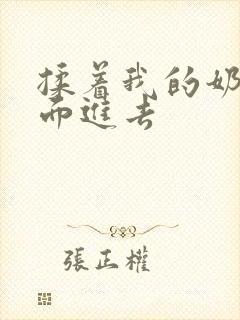 揉着我的奶
而進去
張正權